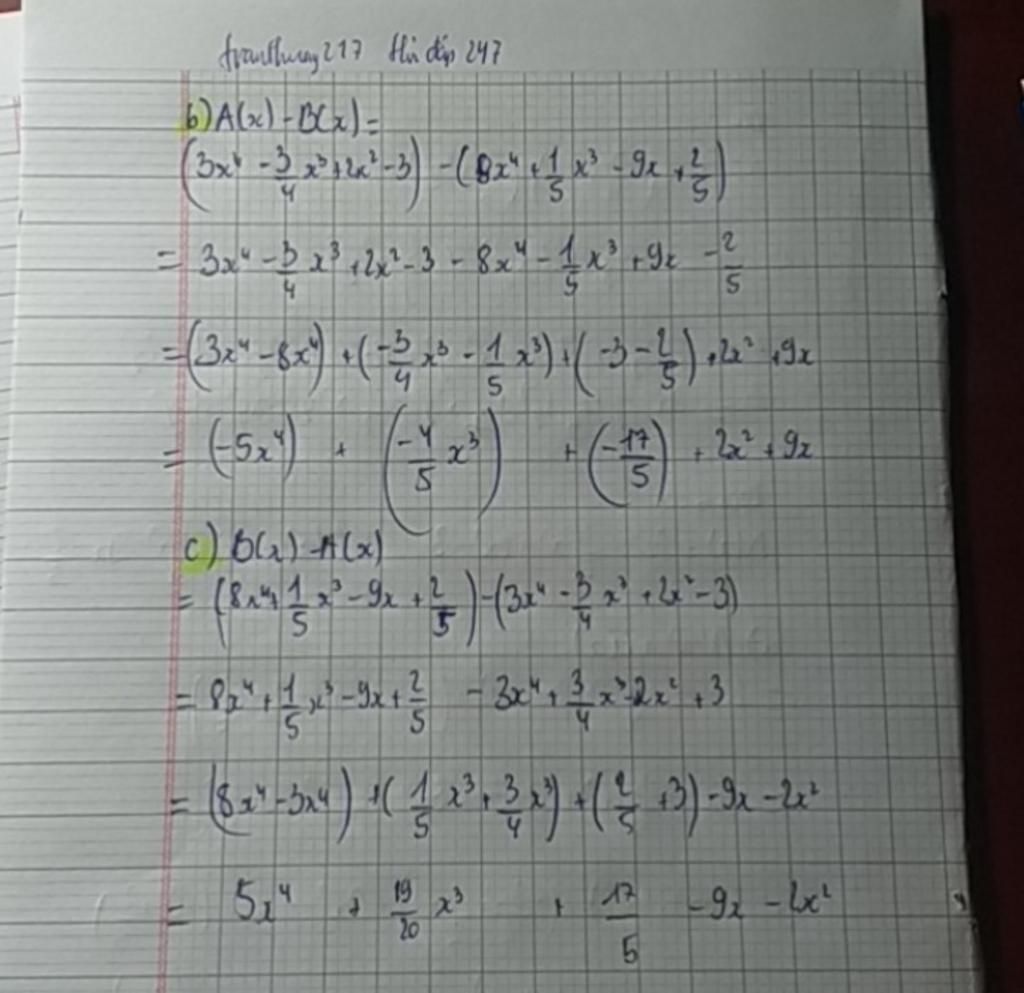 tranthuong217 Hỏi đáp 247
b) A(x) - B(x) =
(3x⁴ - 3/4 x³ + 2x² - 3) - (8x⁴ + 1/5 x³ - 9x + 2/5)
= 3x⁴ - 3/4 x³ + 2x² - 3 - 8x⁴ - 1/5 x³ + 9x - 2/5
= (3x⁴ - 8x⁴) + (-3/4 x³ - 1/5 x³) + (-3 - 2/5) + 2x² + 9x
= (-5x⁴) + (-4/5 x³) + (-17/5) + 2x² + 9x
c) B(x) - A(x)
= (8x⁴ + 1/5 x³ - 9x + 2/5) - (3x⁴ - 3/4 x³ + 2x² - 3)
= 8x⁴ + 1/5 x³ - 9x + 2/5 - 3x⁴ + 3/4 x³ - 2x² + 3
= (8x⁴ - 3x⁴) + (1/5 x³ + 3/4 x³) + (2/5 + 3) - 9x - 2x²
= 5x⁴ + 19/20 x³ + 17/5 - 9x - 2x²